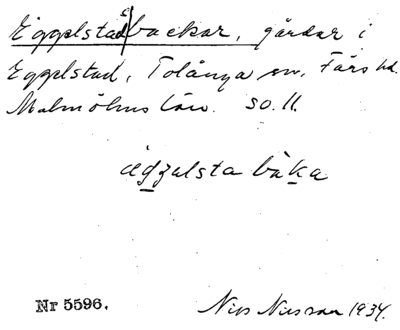 Eggelstadsbackar, gårdar i
Eggelstad, Tolånga sn, Färs hd.
Malmöhus län. SO. 11.
ägzalsta bàka
Nr 5596. Nils Nilsson 1934.